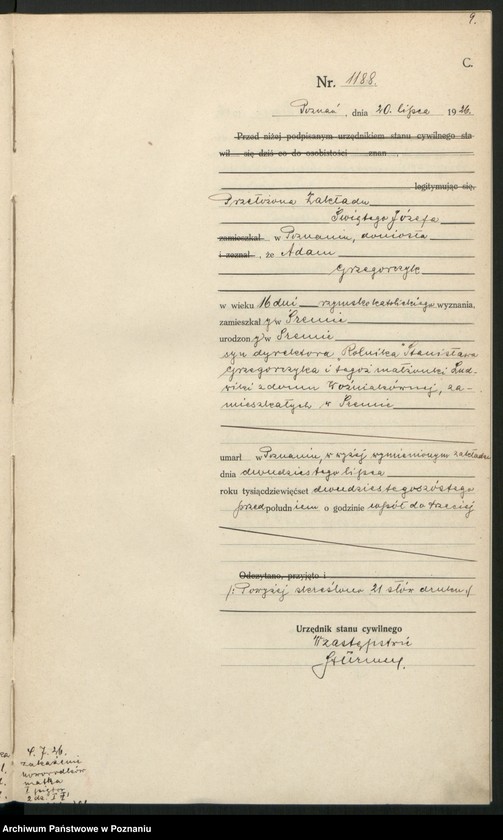 9.
C.
Nr. 1188.
Poznań, dnia 20. lipca 1926.
Przed niżej podpisanym urzędnikiem stanu cywilnego sta
wił się dziś co do osobistości znan ,
legitymując się,
Przełożona Zakładu
Świętego Józefa
zamieszkał w Poznaniu, doniosła
i zeznał , że Adam
Grzegorczyk
w wieku 16 dni rzymskokatolickiego wyznania,
zamieszkał y w Śremie
urodzon y w Śremie
syn dyrektora "Rolnika" Stanisława
Grzegorczyka i tegoż małżonki Lud-
wiki z domu Woźniakównej, za-
mieszkałych w Śremie
umarł w Poznaniu, w wyżej wymienionym zakładzie
dnia dwudziestego lipca
roku tysiącdziewięćset dwudziestegoszóstego
przed południem o godzinie wpół do trzeciej
Odczytano, przyjęto i
/: Powyżej skreślono 21 słów druku :/
Urzędnik stanu cywilnego
W zastępstwie
4. 7. 26.
zakażenie
noworodków
matka
Archiwum Państwowe w Poznaniu